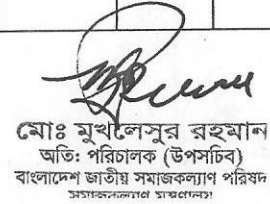 মোঃ মুখলেসুর রহমান
অতি: পরিচালক (উপসচিব)
বাংলাদেশ জাতীয় সমাজকল্যাণ পরিষদ
সমাজকল্যাণ মন্ত্রণালয়